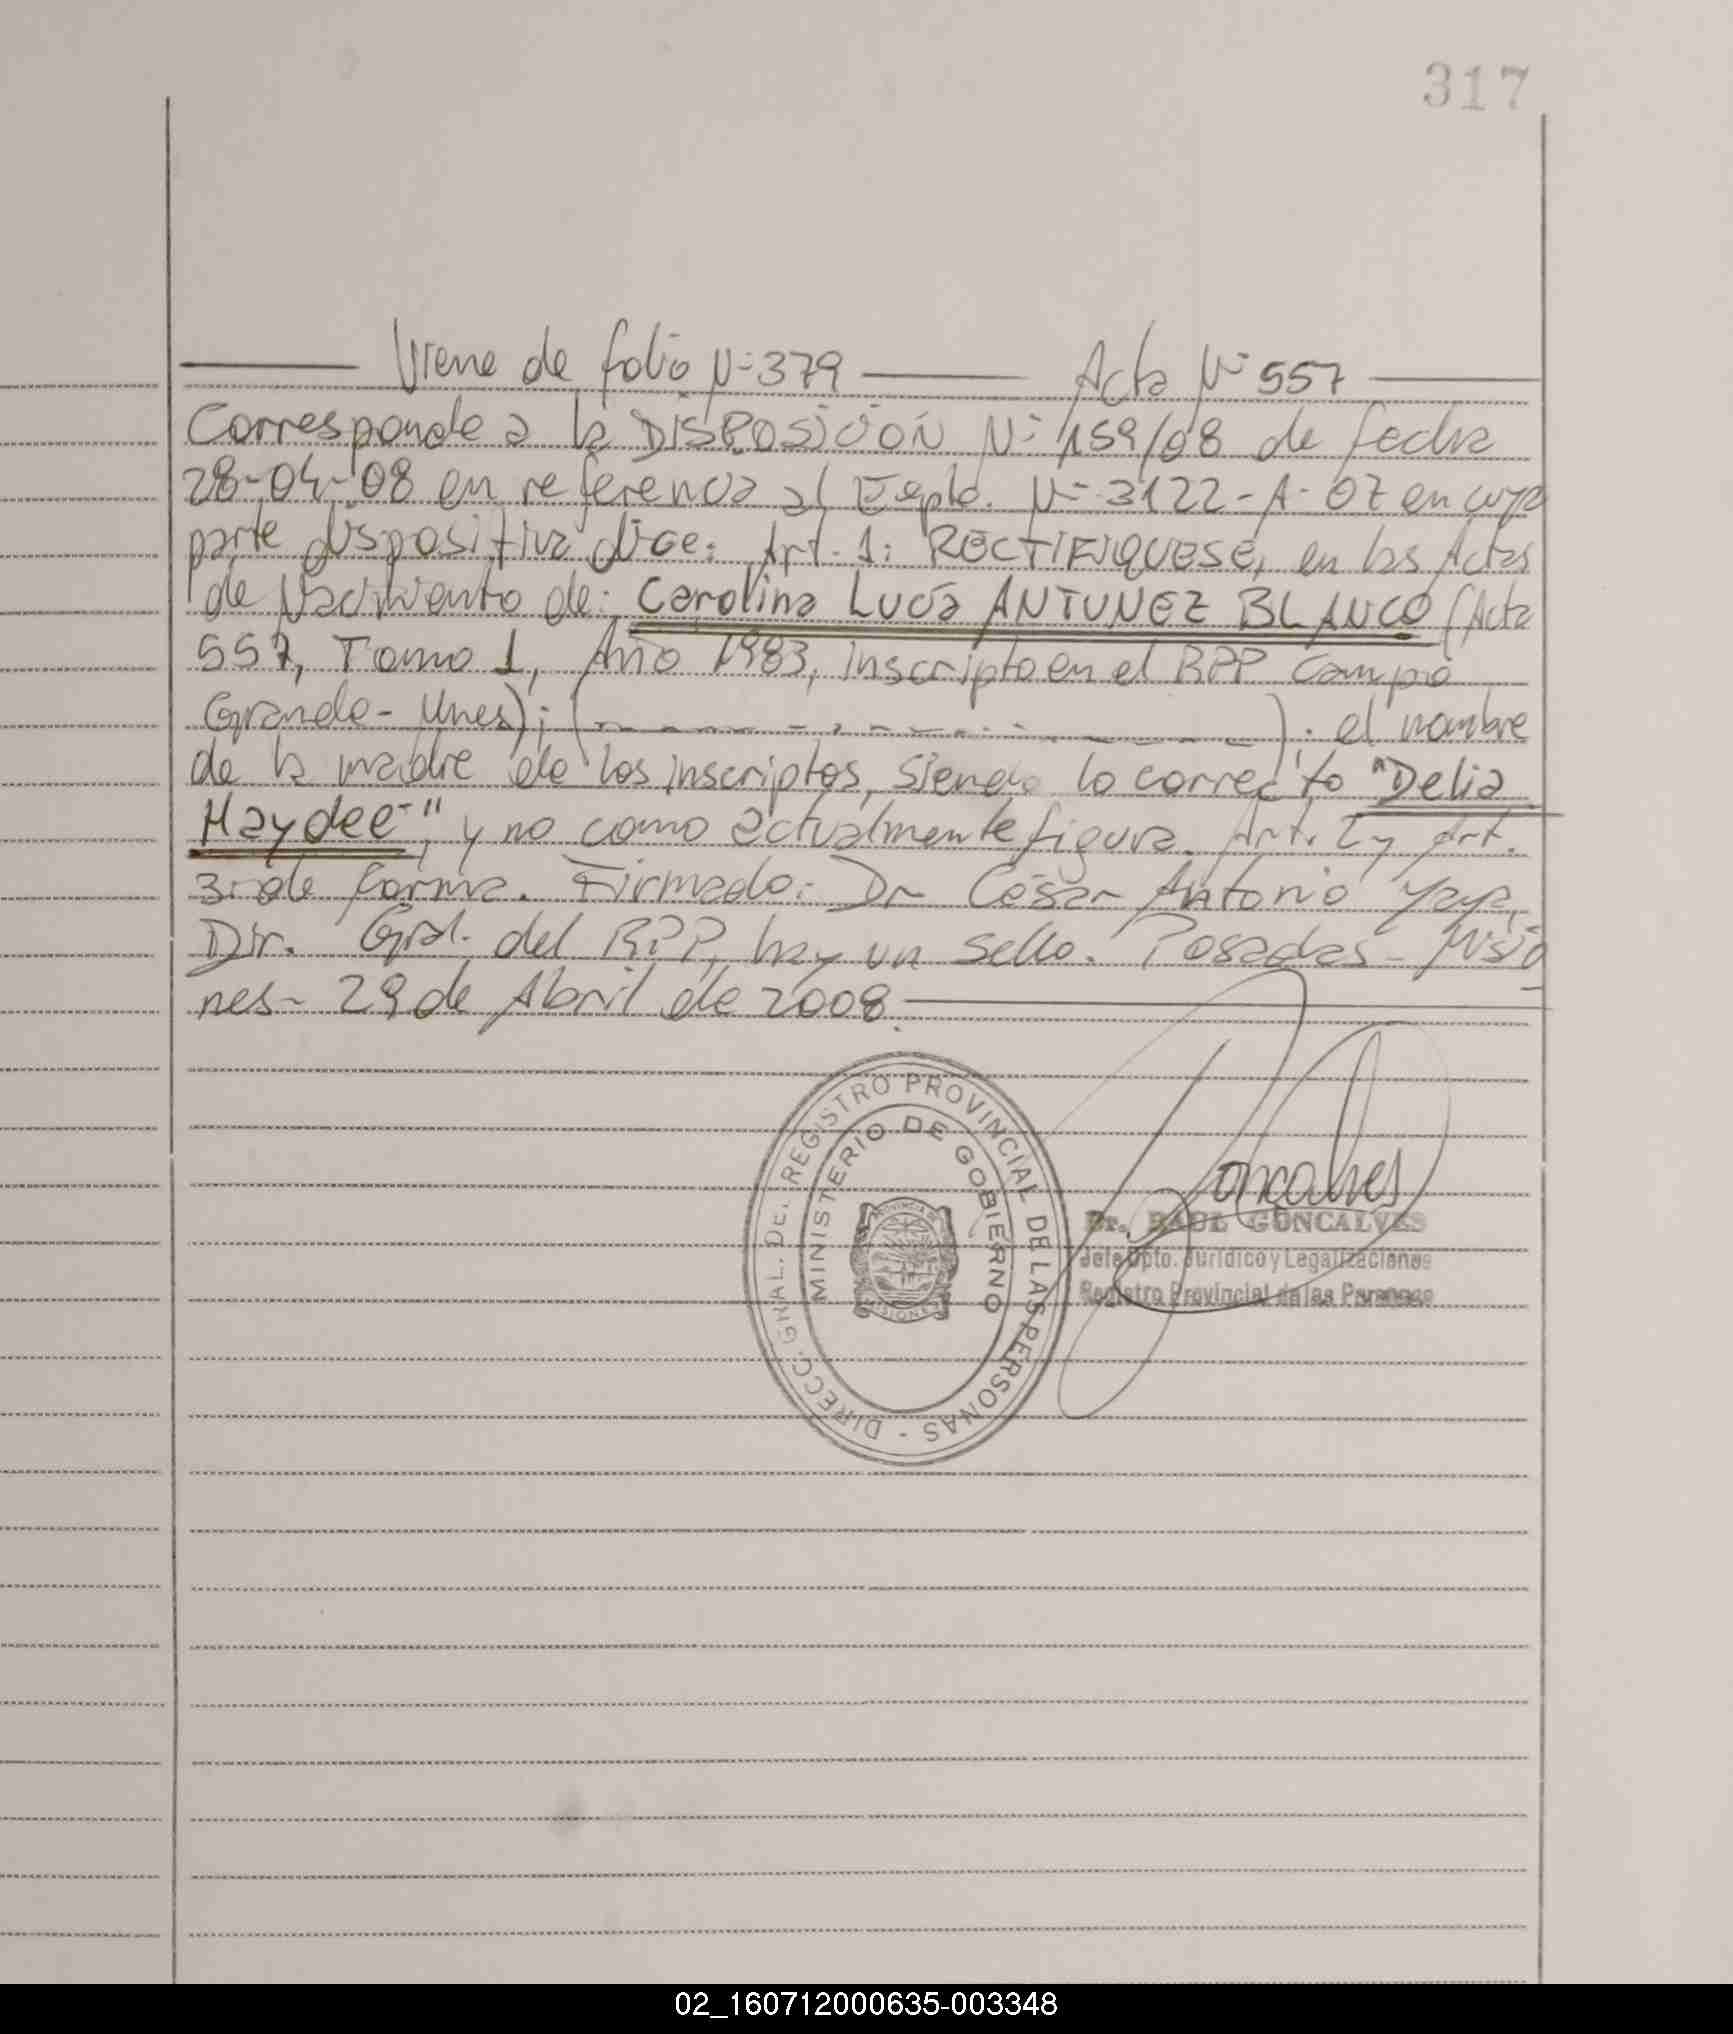 317
Viene de folio Nº 379 Acta Nº 557
Corresponde a la DISPOSICIÓN Nº 159/08 de fecha
28-04-08 en referencia al Expte. Nº 3122-A-07 en cuya
parte dispositiva dice: Art. 1: RECTIFIQUESE, en las Actas
de Nacimiento de: Carolina Lucía ANTUNEZ BLANCO (Acta
557, Tomo 1, Año 1983, inscripto en el RPP Campo
Grande - Mnes); ( ); el nombre
de la madre de los inscriptos, siendo lo correcto "Delia
Haydee", y no como actualmente figura. Art. 2 y Art.
3: de forma. Firmado: Dr César Antonio Yaya,
Dir. Gral. del RPP, hay un sello. Posadas - Misio
nes - 29 de Abril de 2008.
DIRECC. GRAL. DEL REGISTRO PROVINCIAL DE LAS PERSONAS -
MINISTERIO DE GOBIERNO
PROVINCIA DE
MISIONES
Goncalves
Dr. RAUL GONCALVES
Jefe Dpto. Jurídico y Legalizaciones
Registro Provincial de las Personas
02_160712000635-003348